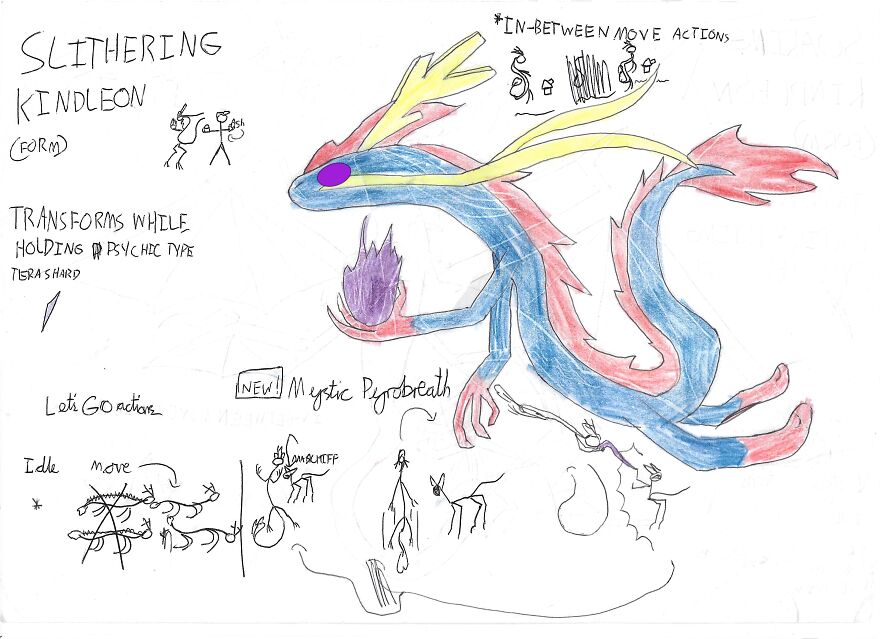 SLITHERING
KINDLEON
(FORM)
*IN-BETWEEN MOVE ACTIONS
Ash
TRANSFORMS WHILE
HOLDING PSYCHIC TYPE
TERA SHARD
NEW! Mystic Pyrobreath
Let's GO actions
Idle move
*